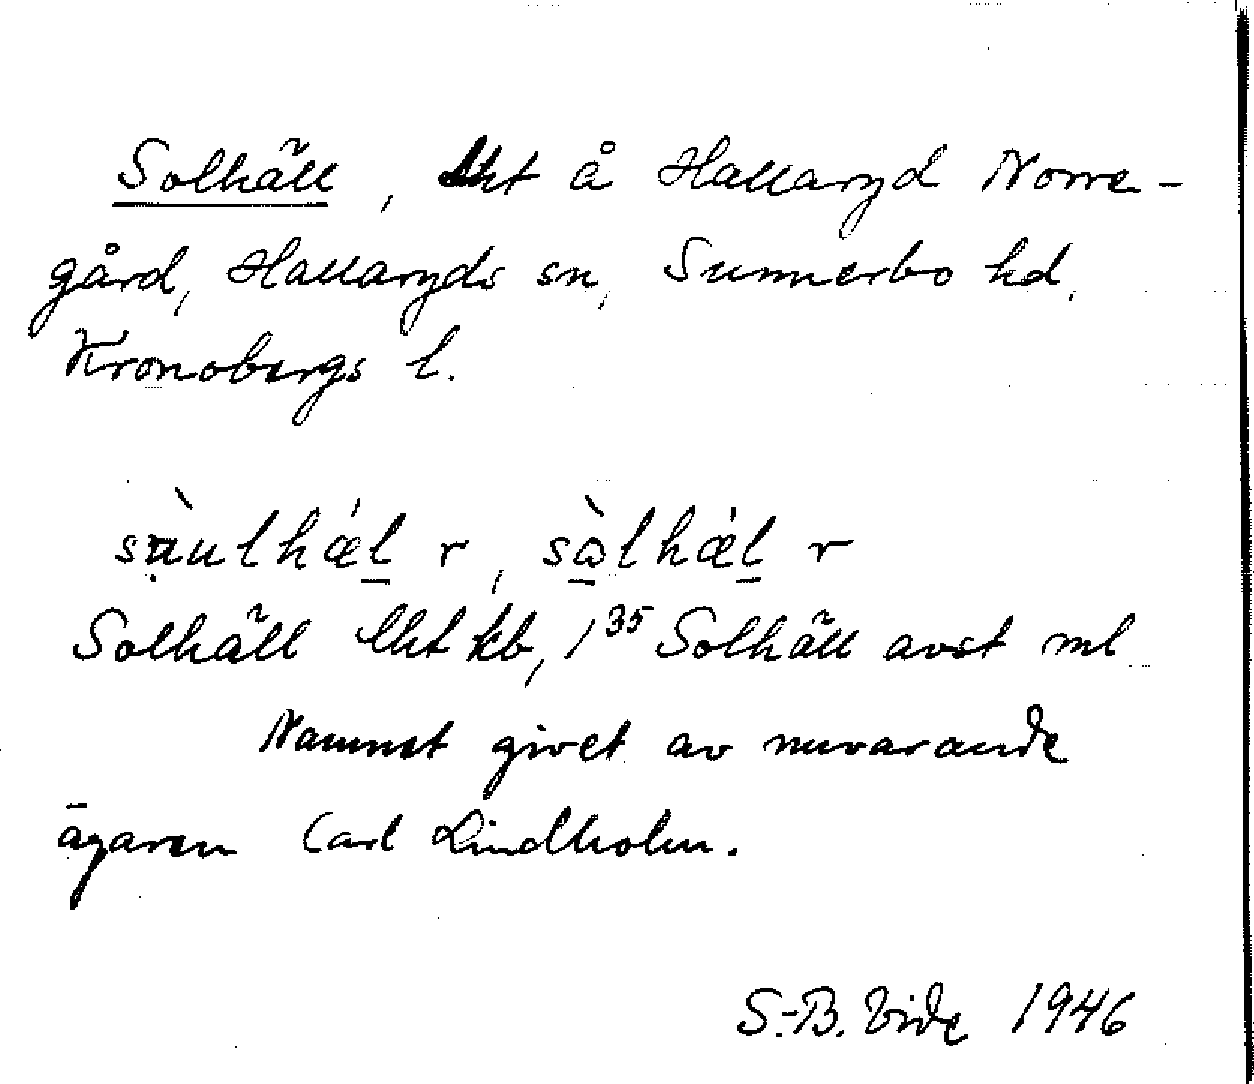 Solhäll, lht å Hallaryd Norre-
gård, Hallaryds sn, Sunnerbo hd,
Kronobergs l.
sɑ̀ulhǽl̲ r, sò̲lhǽl̲ r
Solhäll lht kb, 1³⁵ Solhäll avst ml
Namnet givet av nuvarande
ägaren Carl Lindholm.
S.-B. Vide 1946